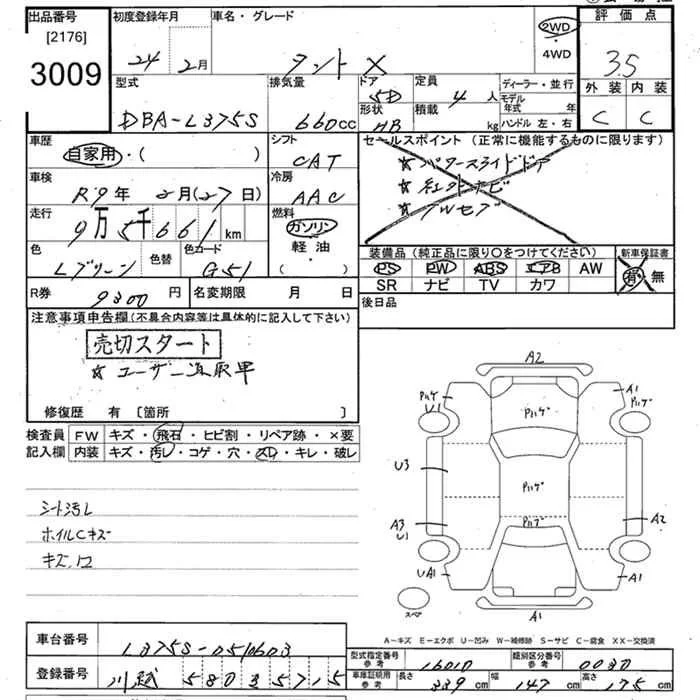 出品番号 初度登録年月 車名・グレード 評価点
[2176]
3009
24年 2月 タント X 2WD 4WD 3.5
型式 排気量 ドア 定員 ディーラー・並行 外装 内装
DBA-L375S 660cc 5D 4人 モデル年式 年
形状 積載 ハンドル 左・右 C C
HB kg
車歴 シフト セールスポイント (正常に機能するものに限ります)
自家用・( ) CAT ☆パワースライドドア
車検 冷房 ☆社外ナビ
R9年 2月(27日) AAC
走行 燃料
9万5千661km ガソリン
軽油・( )
色 色替 色コード 装備品 (純正品に限り○をつけてください) 新車保証書
Lグリーン G51 PS PW ABS エアB AW 有・無
SR ナビ TV カワ
R券 9300円 名変期限 月 日 後日品
注意事項申告欄(不具合内容等は具体的に記入して下さい)
売切スタート
☆ユーザー買取車
修復歴 有 [箇所 ]
検査員 FW キズ・飛石・ヒビ割・リペア跡・×要
記入欄 内装 キズ・汚レ・コゲ・穴・スレ・キレ・破レ
シート汚レ
ホイルCキズ
A2
Pハゲ U1 Pハゲ A1 Pハゲ
U3 Pハゲ
A3 U1 Pハゲ A2
UA1 A1
スペア A1
A-キズ E-エクボ U-凹み W-補修跡 S-サビ C-腐食 XX-交換済
車台番号 L375S-0510603
登録番号 川越 580 35715
型式指定番号 参考 16010 類別区分番号 参考 0030
車庫証明用 参考 長さ 339cm 幅 147cm 高さ 175cm